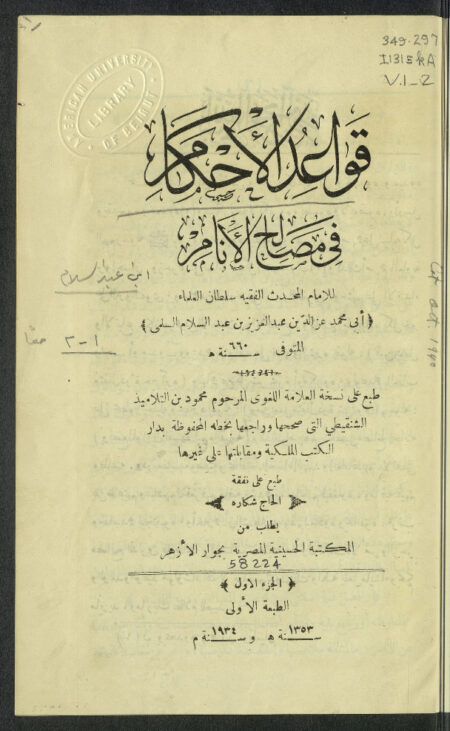 349.297
I1315kA
V.1-2
AMERICAN UNIVERSITY
LIBRARY
OF BEIRUT
قواعد الأحكام
في مصالح الأنام
ابن عبد السلام
للإمام المحدث الفقيه سلطان العلماء
﴿ أبي محمد عز الدين عبد العزيز بن عبد السلام السلمي ﴾
١-٢ معًا
المتوفى سنة ٦٦٠ ه
طبع على نسخة العلامة اللغوى المرحوم محمود بن التلاميذ
الشنقيطي التى صححها وراجعها بخطه المحفوظة بدار
الكتب الملكية ومقابلتها على غيرها
طبع على نفقة
الحاج شكاره
يطلب من
المكتبة الحسينية المصرية بجوار الأزهر
58224
﴿ الجزء الاول ﴾
الطبعة الأولى
سنة ١٣٥٣ ه و سنة ١٩٣٤ م